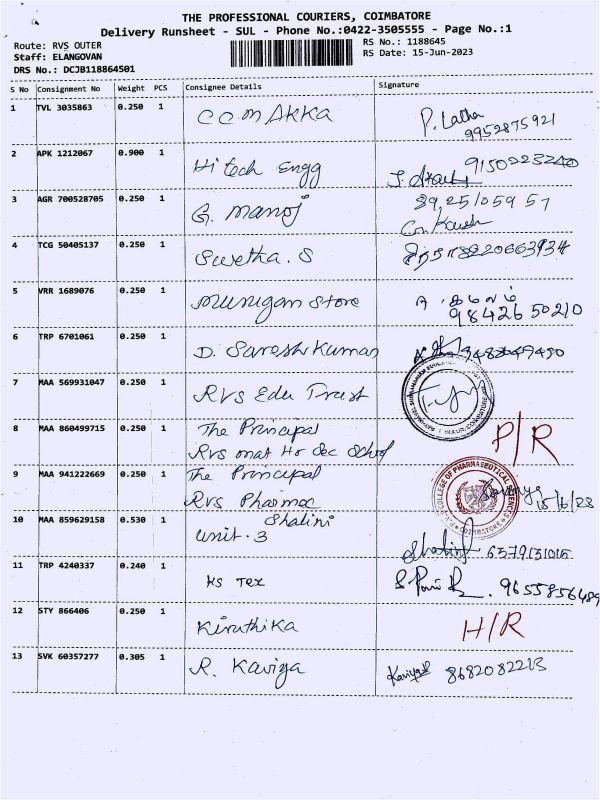 THE PROFESSIONAL COURIERS, COIMBATORE
Delivery Runsheet - SUL - Phone No.:0422-3505555 - Page No.:1
Route: RVS OUTER
Staff: ELANGOVAN
DRS No.: DCJB118864501
RS No.: 1188645
RS Date: 15-Jun-2023
S No Consignment No Weight PCS Consignee Details Signature
1 TVL 3035863 0.250 1 CCM AKKA P. Latha
9952875921
2 APK 1212067 0.900 1 Hitech Engg 9150223240
3 AGR 700528705 0.250 1 G. Manoj 89,25105957
4 TCG 50405137 0.250 1 Swetha. S 8220663934
5 VRR 1689076 0.250 1 Murugan Store
98426 50210
6 TRP 6701061 0.250 1 D. Sureshkumar
7 MAA 569931047 0.250 1 RVS Edu Trust
8 MAA 860499715 0.250 1 The Principal P/R
RVS mat Hr Sec School
9 MAA 941222669 0.250 1 The Principal
RVS Pharmac 15/6/23
COLLEGE OF PHARMACEUTICAL SCIENCES
COIMBATORE
10 MAA 859629158 0.530 1 Shalini
Unit - 3
11 TRP 4240337 0.240 1 KS Tex 9655856489
12 STY 866406 0.250 1 Kiruthika H/R
13 SVK 60357277 0.305 1 R. Kaviya Kaviya 8682082213